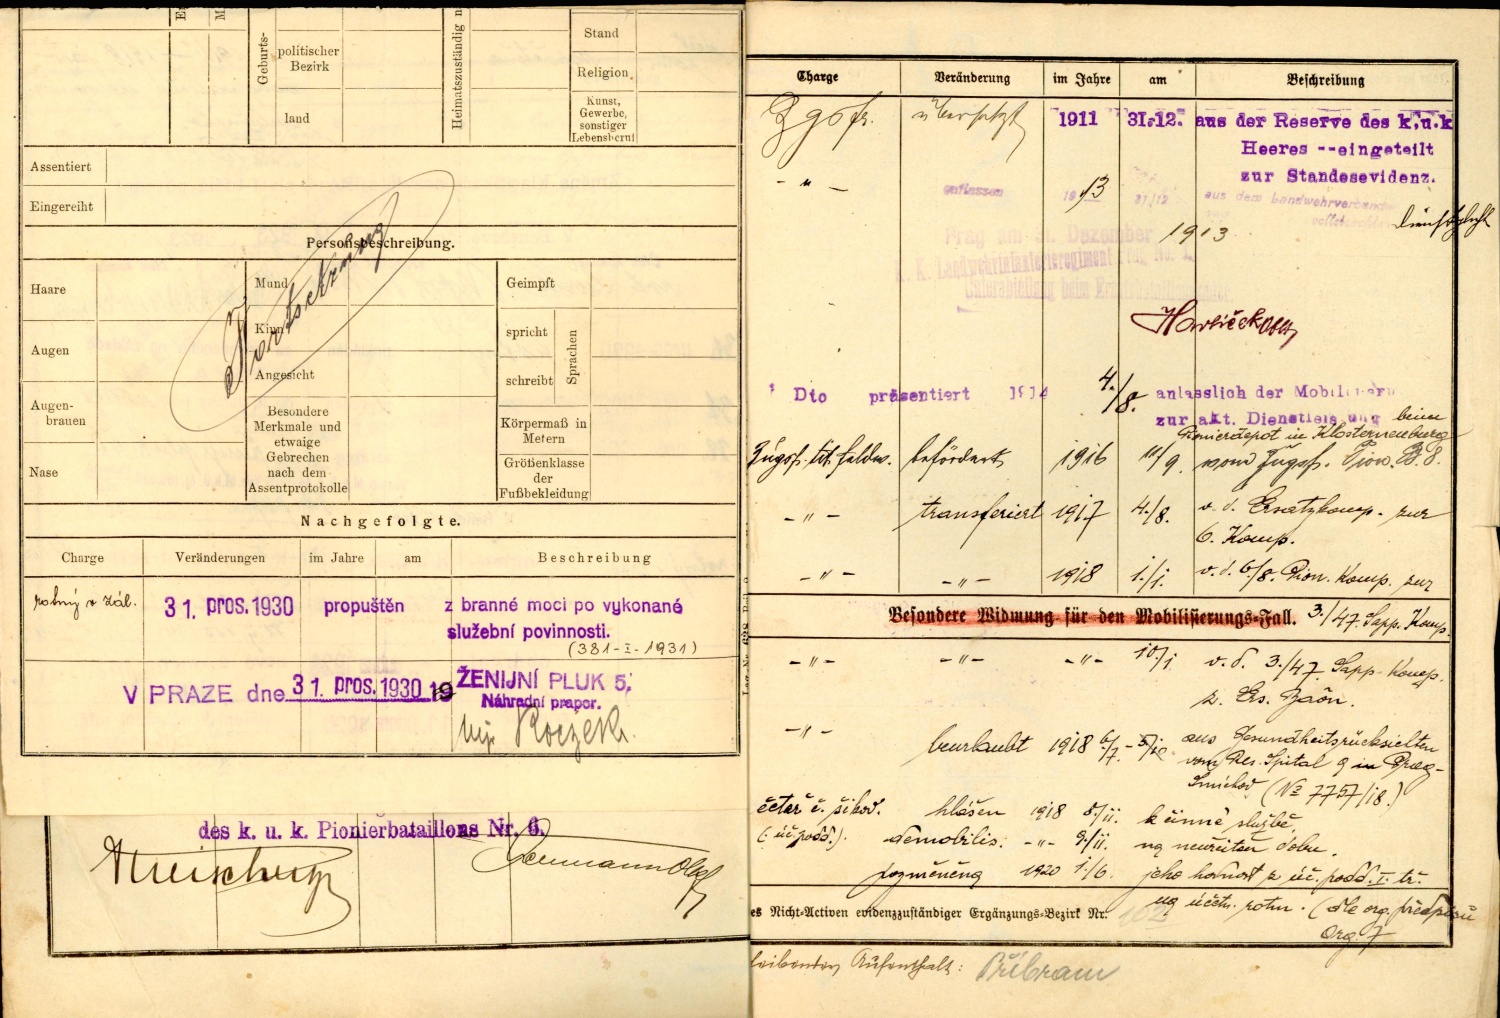 politischer
Bezirk
land
Geburts-
Heimatszuständig
Stand
Religion
Kunst,
Gewerbe,
sonstiger
Lebensberuf
Assentiert
Eingereiht
Personsbeschreibung.
Fortsetzung
Haare
Mund
Geimpft
Augen
Kinn
spricht
Sprachen
Angesicht
schreibt
Augen-
brauen
Besondere
Merkmale und
etwaige
Gebrechen
nach dem
Assentprotokolle
Körpermaß in
Metern
Nase
Größenklasse
der
Fußbekleidung
Nachgefolgte.
Charge Veränderungen im Jahre am Beschreibung
rotný v zál. 31. pros. 1930 propuštěn z branné moci po vykonané
služební povinnosti.
(381-I-1931)
V PRAZE dne 31. pros. 1930 19 ŽENIJNÍ PLUK 5.
Náhradní prapor.
des k. u. k. Pionierbataillons Nr. 6.
Charge Veränderung im Jahre am Beschreibung
Zgsfr. übersetzt 1911 31.12. aus der Reserve des k.u.k
Heeres --eingeteilt
zur Standesevidenz.
-"- entlassen 1913 31/12 aus dem Landwehrverbande
Dienstpflicht
Prag am 31. Dezember 1913
K. K. Landwehrinfanterieregiment Prag No.
Unterabteilung beim
Havlíček Oblt
Dto präsentiert 1914 4./8. anlasslich der
zur akt. beim
Pionierdepot in Klosterneuburg
Zugsf. tit. Feldw. befördert 1916 11/9. vom Zugsf. Pion. B. 8.
-"- transferiert 1917 4./8. v. d. Ersatzkomp. zur
6. Komp.
-"- -"- 1918 1./1. v. d. 6/8. Pion. Komp. zur
Besondere Widmung für den Mobilisierungs-Fall. 3./47. Sapp. Komp.
-"- -"- -"- 10/1 v. d. 3./47. Sapp. Komp.
z. Ers. Baon.
-"- beurlaubt 1918 6/7. - aus Gesundheitsrücksichten
vom Res. Spital 9 in Prag-
Smichov (№ 7757/18.)
četař č. šikov. hlášen 1918 5/11. k činné službě
(: úč. podd.:) demobilis. -"- 9/11. na neurčitou dobu.
pozměněna 1920 1./6. jeho hodnost z úč. podd. I. tř.
na účetn. rotm. (dle org. předpisu
Org. 7
es Nicht-Activen evidenzzuständiger Ergänzungs-Bezirk Nr. 102
Aufenthalt: Příbram